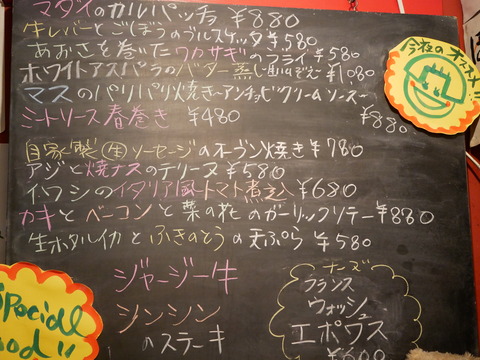 マダイのカルパッチョ ¥880
牛レバーとごぼうのブルスケッタ ¥580
あおさを巻いたワカサギのフライ ¥580
ホワイトアスパラのバター蒸し ¥1080
マスのパリパリ焼き〜アンチョビクリームソース〜
¥880
ミートソース春巻き ¥480
自家製生ソーセージのオーブン焼き ¥780
アジと焼ナスのテリーヌ ¥580
イワシのイタリア風トマト煮込 ¥680
カキとベーコンと菜の花のガーリックソテー ¥880
生ホタルイカとふきのとうの天ぷら ¥580
ジャージー牛
シンシン
のステーキ
チーズ
フランス
ウォッシュ
エポワス
¥600
今夜のオススメ!!